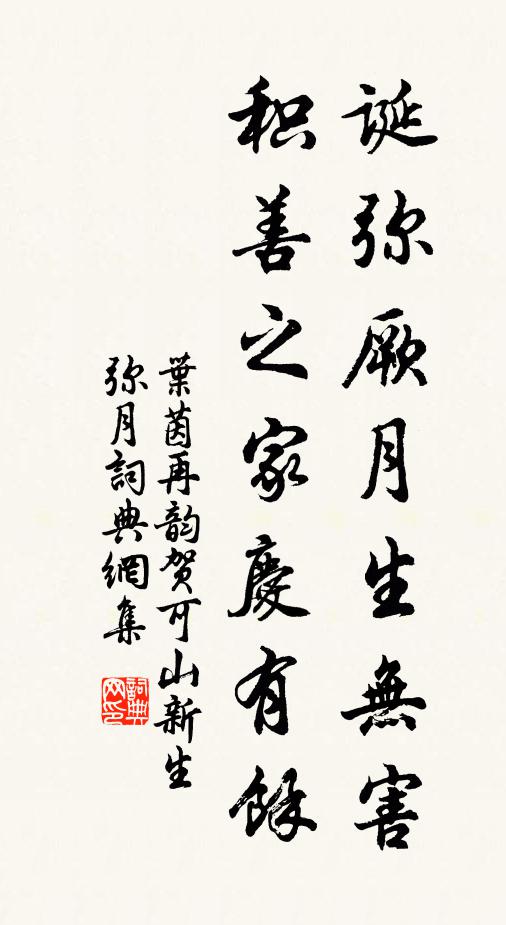 诞弥厥月生無害
积善之家慶有餘
葉茵再韵贺可山新生
弥月詞典網集
詞典网印